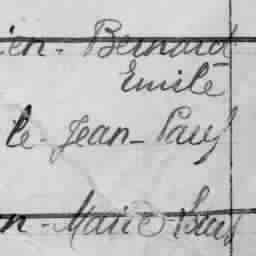 ien - Bernard
Emile
le - Jean - Paul
n - Marie